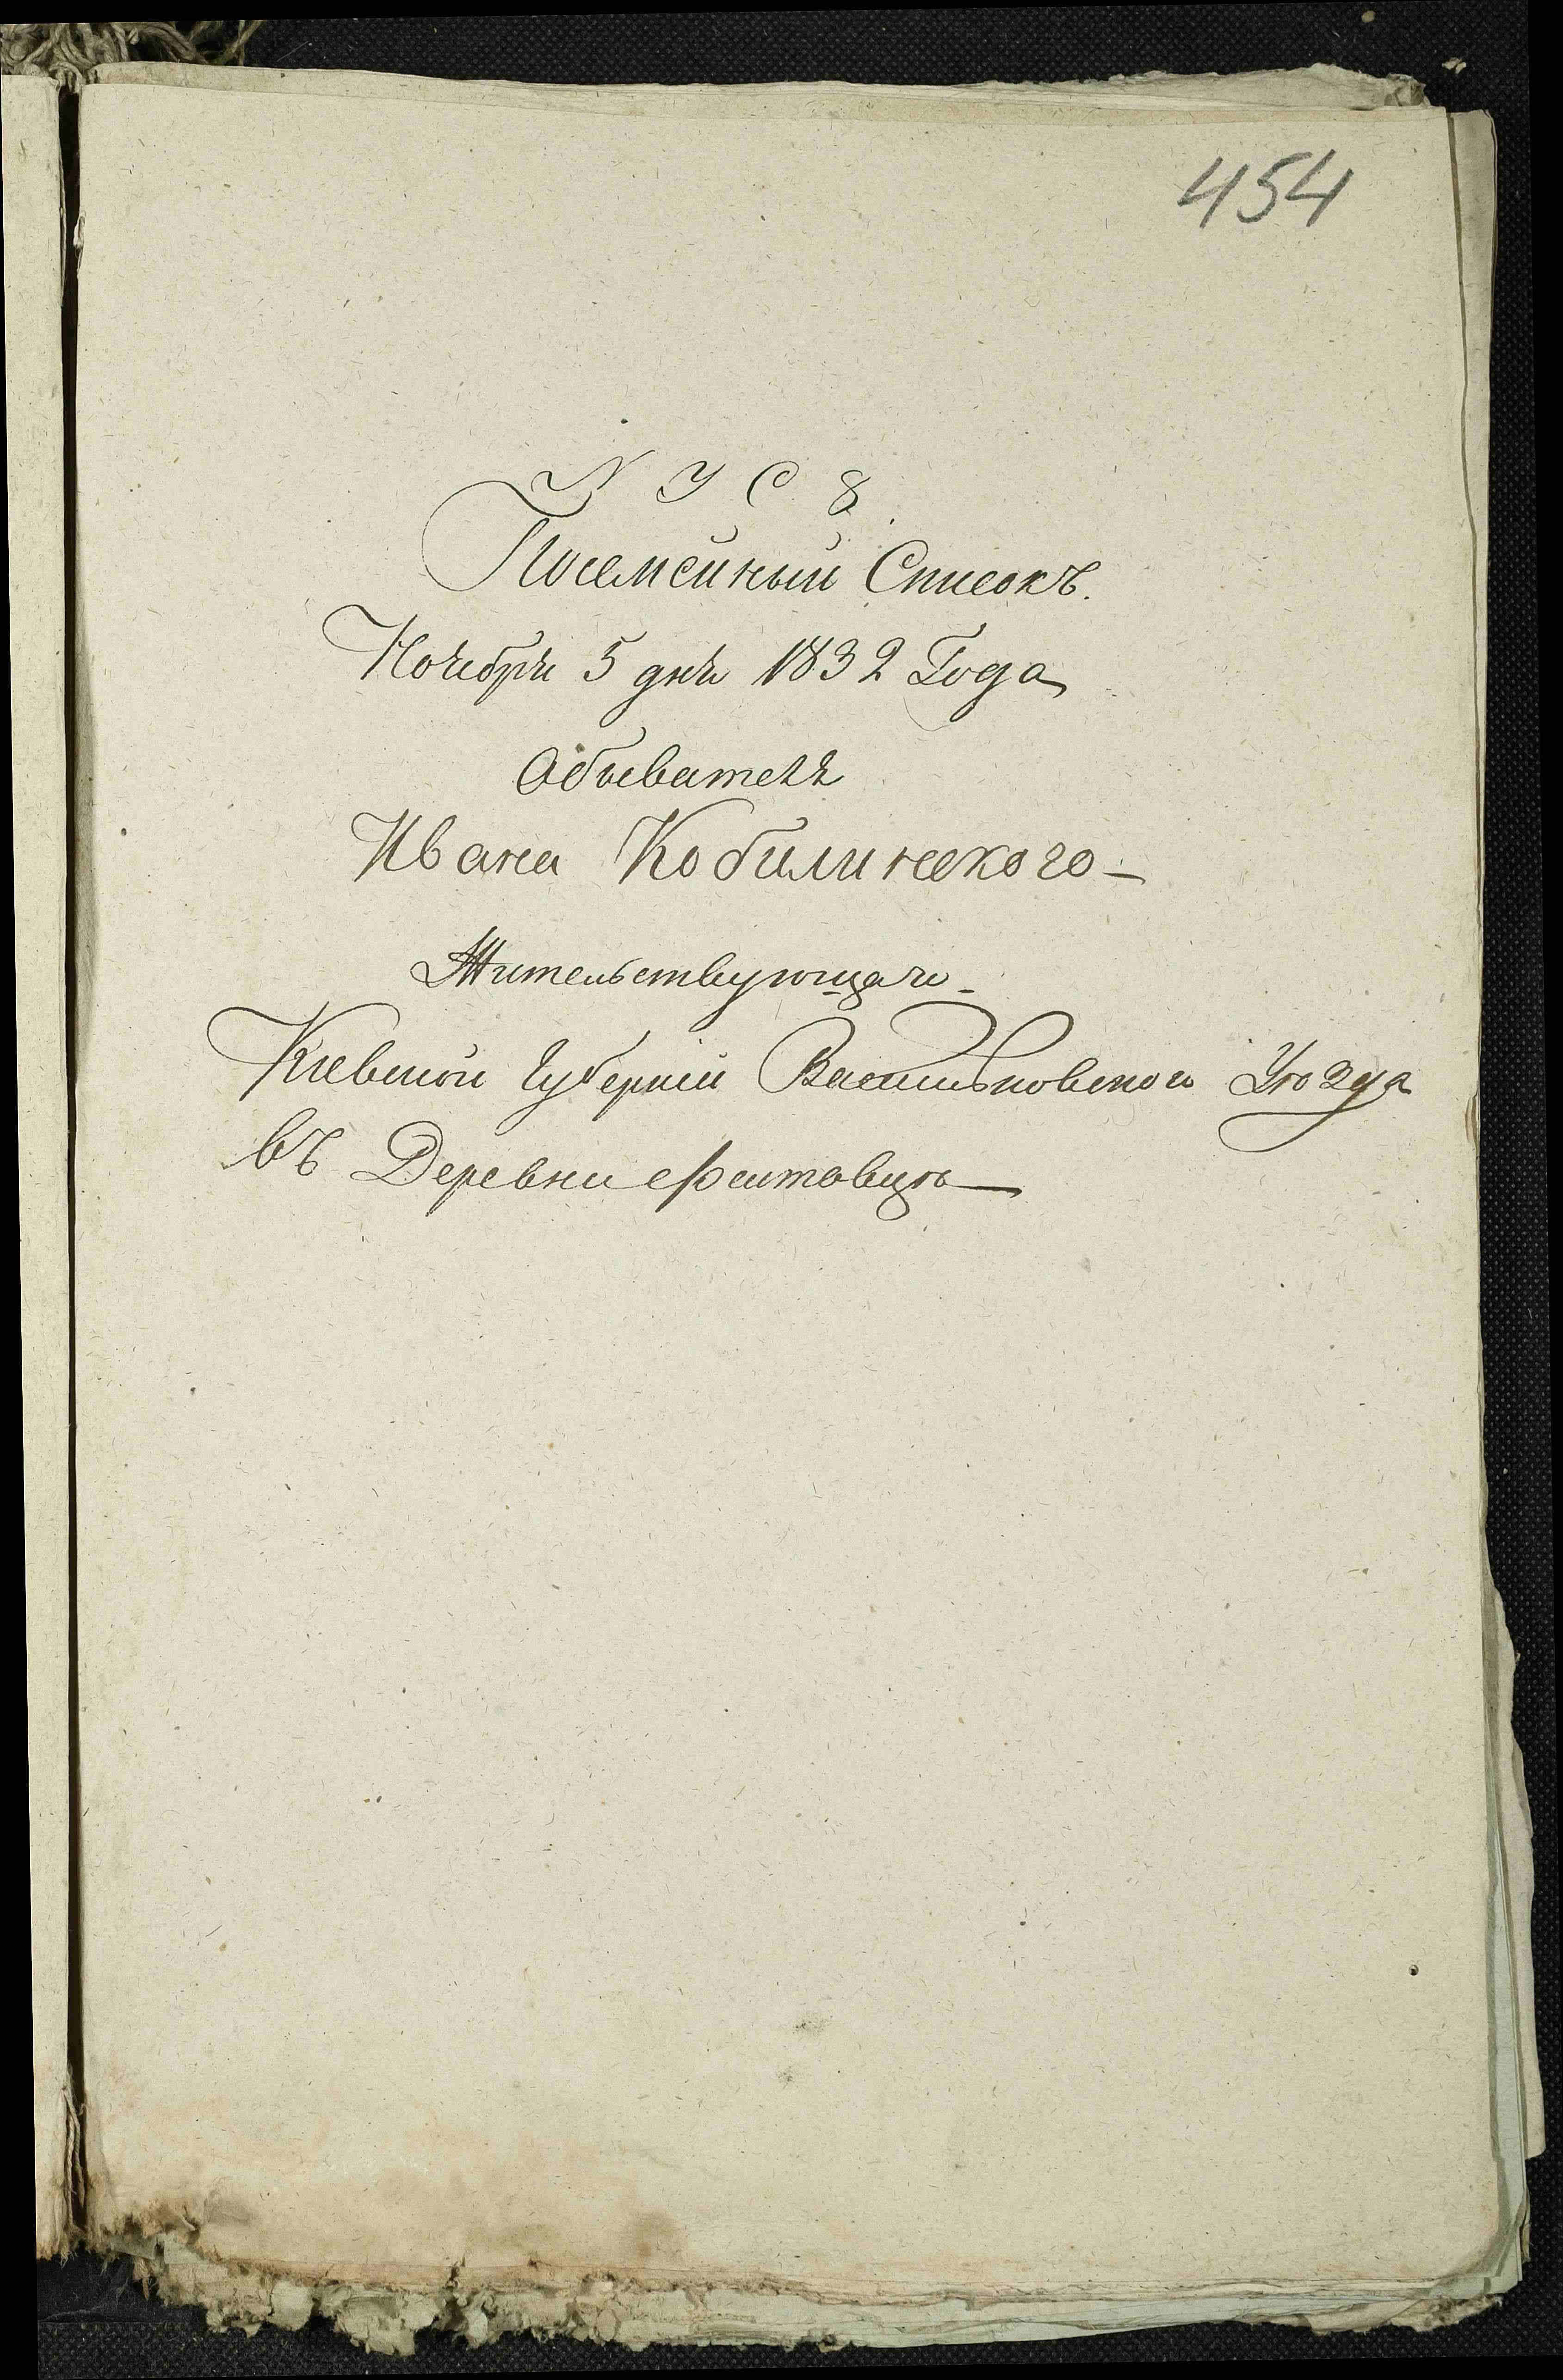 454
Посемейный Списокъ.
Ноября 5 дня 1832 Года
Обывателя
Ивана Кобилинского
Жительствующаго
Кіевской Губерніи Васильковского Уезда
въ Деревни